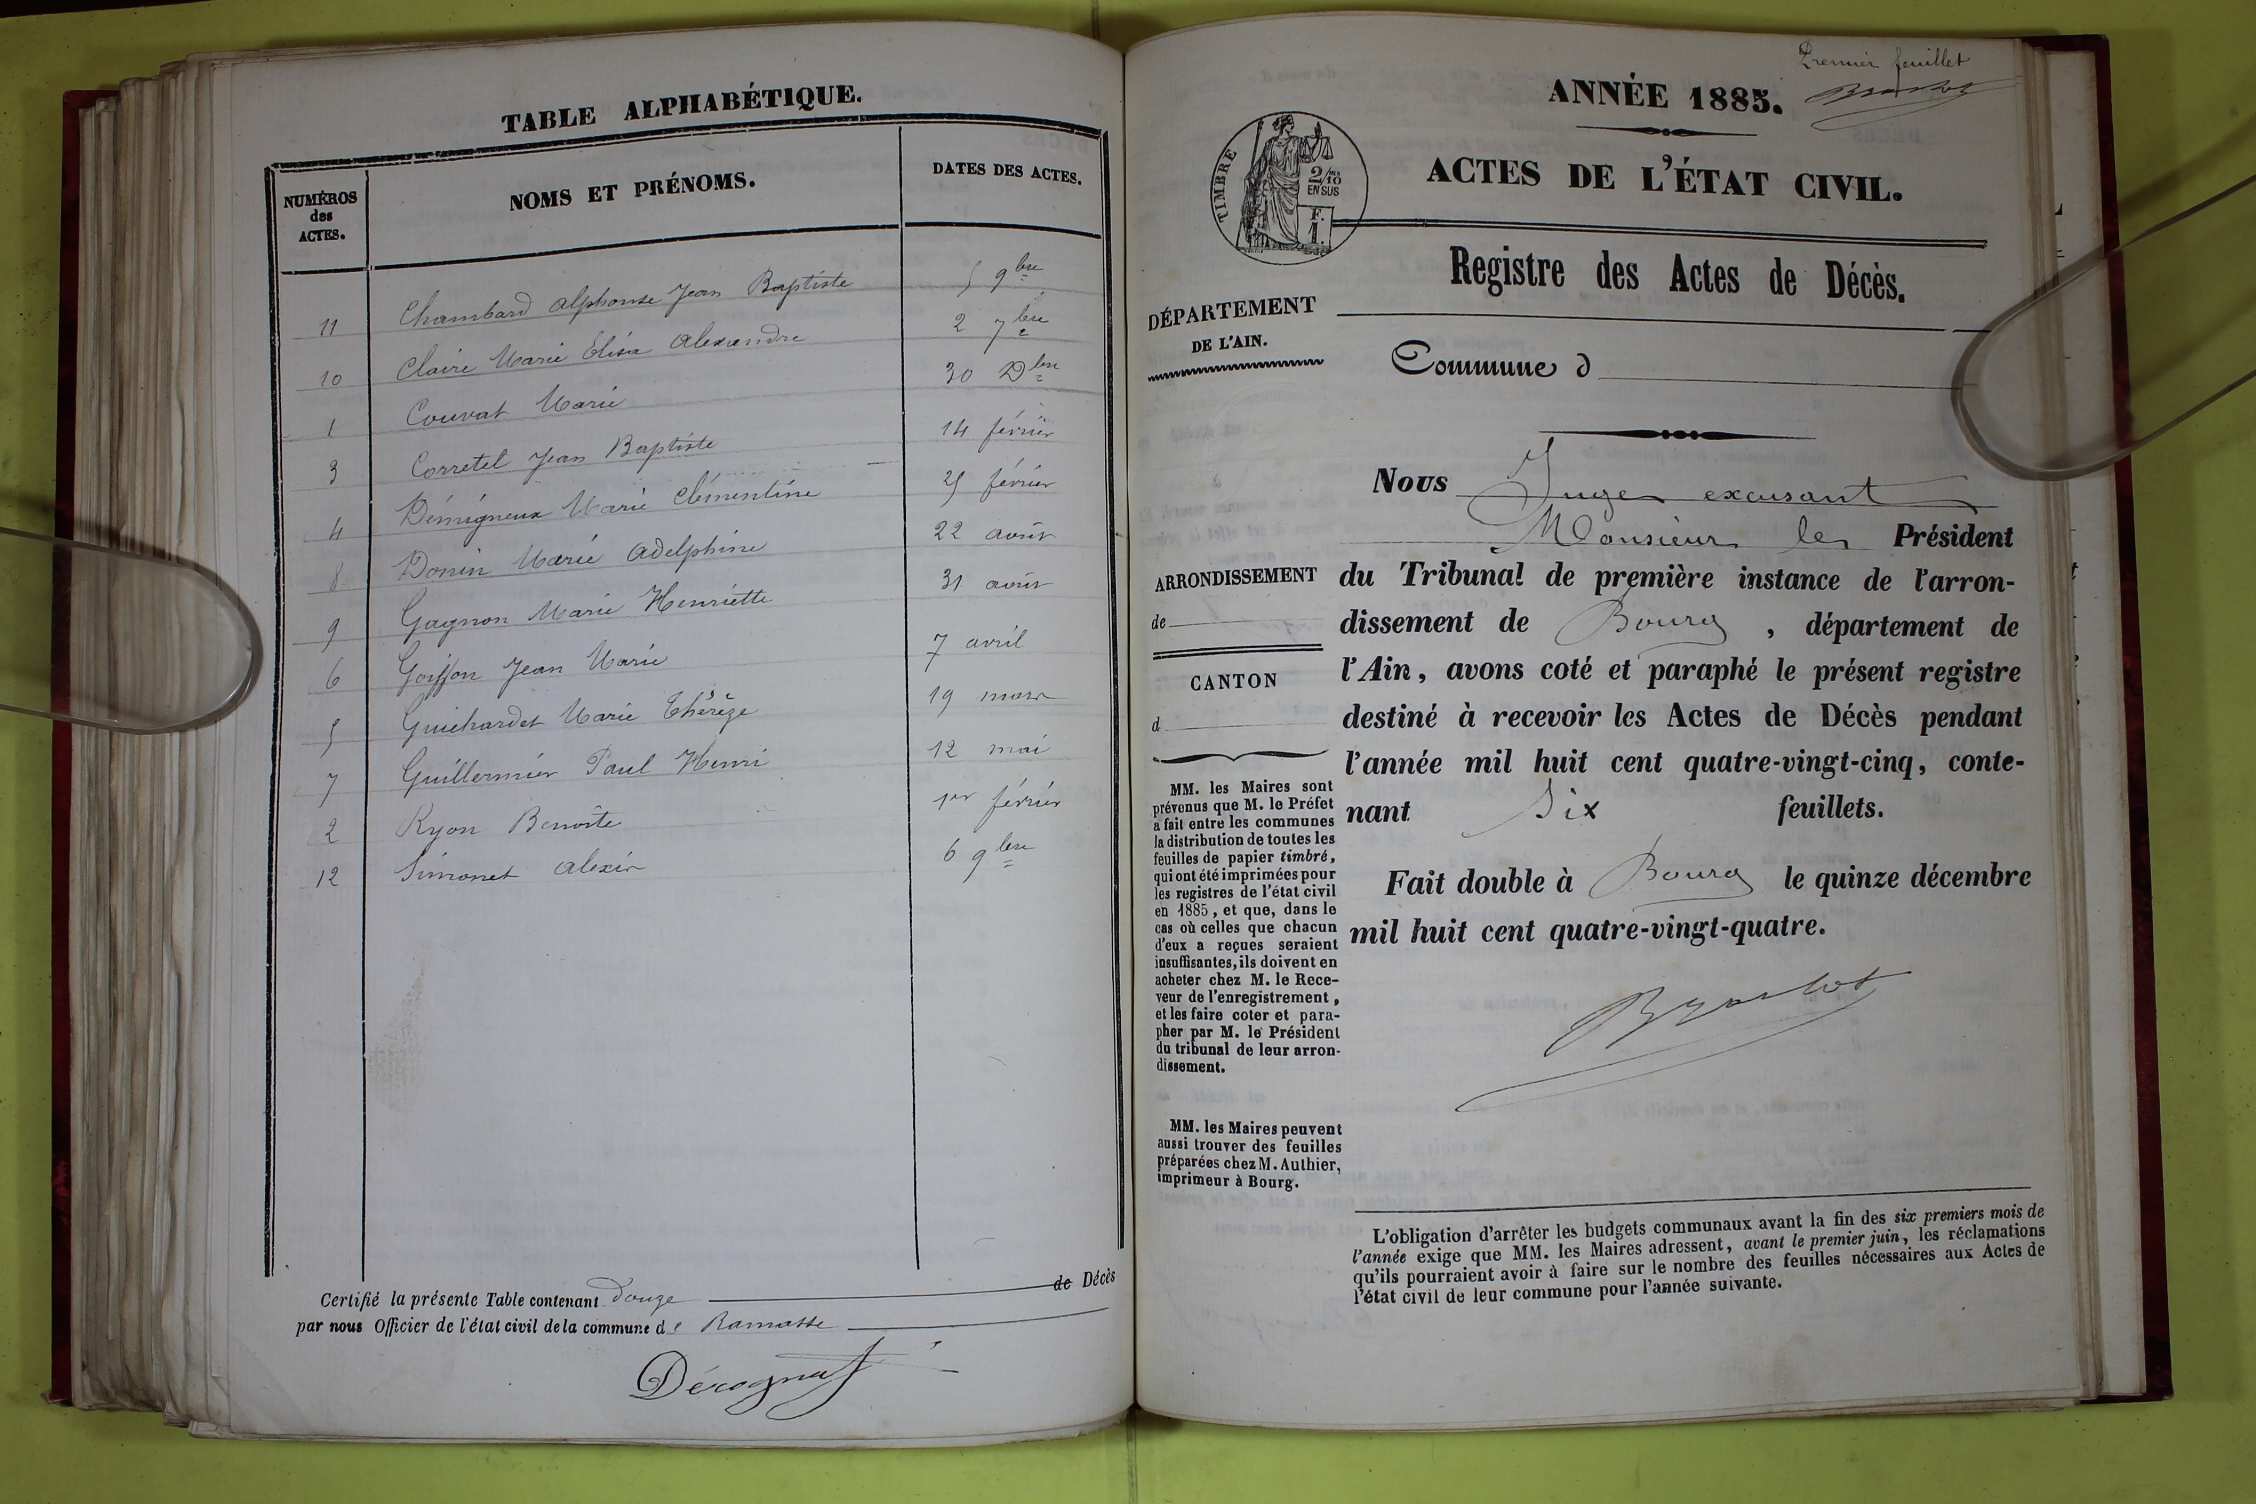 TABLE ALPHABÉTIQUE.
NUMÉROS des ACTES.
NOMS ET PRÉNOMS.
DATES DES ACTES.
11 Chambard Alphonse Jean Baptiste 5 9bre
10 Claire Marie Elisa Alexandre 2 7bre
1 Couvat Marie 30 Dbre
3 Corretel Jean Baptiste 14 février
4 Démigneux Marie Clémentine 25 février
8 Donin Marie Adelphine 22 août
9 Gagnon Marie Henriette 31 août
6 Goisson Jean Marie 7 avril
5 Guichardet Marie Thérèze 19 mars
7 Guillermier Paul Henri 12 mai
2 Ryon Benoîte 1er février
12 Simonet Alexis 6 9bre
Certifié la présente Table contenant douze de Décès
par nous Officier de l'état civil de la commune de Ramasse
Premier feuillet
ANNÉE 1885.
TIMBRE
2/10 EN SUS
F. 1.
ACTES DE L'ÉTAT CIVIL.
Registre des Actes de Décès.
DÉPARTEMENT
DE L'AIN.
Commune d
Nous Juge excusant
Monsieur le Président
du Tribunal de première instance de l'arron-
dissement de Bourg, département de
l'Ain, avons coté et paraphé le présent registre
destiné à recevoir les Actes de Décès pendant
l'année mil huit cent quatre-vingt-cinq, conte-
nant Six feuillets.
Fait double à Bourg le quinze décembre
mil huit cent quatre-vingt-quatre.
ARRONDISSEMENT
de
CANTON
d
MM. les Maires sont
prévenus que M. le Préfet
a fait entre les communes
la distribution de toutes les
feuilles de papier timbré,
qui ont été imprimées pour
les registres de l'état civil
en 1885, et que, dans le
cas où celles que chacun
d'eux a reçues seraient
insuffisantes, ils doivent en
acheter chez M. le Rece-
veur de l'enregistrement,
et les faire coter et para-
pher par M. le Président
du tribunal de leur arron-
dissement.
MM. les Maires peuvent
aussi trouver des feuilles
préparées chez M. Authier,
imprimeur à Bourg.
L'obligation d'arrêter les budgets communaux avant la fin des six premiers mois de
l'année exige que MM. les Maires adressent, avant le premier juin, les réclamations
qu'ils pourraient avoir à faire sur le nombre des feuilles nécessaires aux Actes de
l'état civil de leur commune pour l'année suivante.